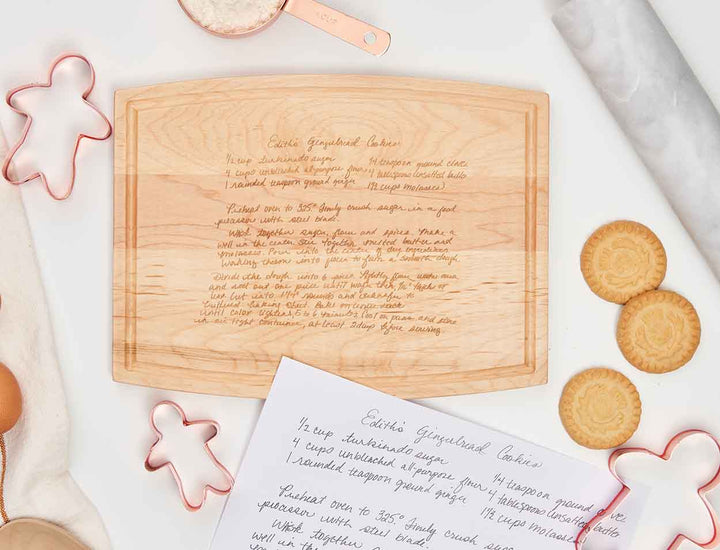 Edith's Gingerbread Cookies
1/2 cup turbinado sugar 1/4 teaspoon ground clove
4 cups unbleached all-purpose flour 4 tablespoons unsalted butter
1 rounded teaspoon ground ginger 1 1/2 cups molasses
Preheat oven to 325° Finely crush sugar in a food
processor with steel blade.
Whisk together sugar, flour and spices. Make a
well in the center. Stir together melted butter and
molasses. Pour into the center of dry ingredients
working them into flour to form a smooth dough.
Divide the dough into 6 Lightly flour
and roll out one piece until 1/16" thick or
less. Cut into 1 3/4" rounds and transfer to
buttered baking sheet. Bake on rack
until color lightens, 5 to 6 minutes. Cool on and store
in air tight container, at least 2 days before serving.
Edith's Gingerbread Cookies
1/2 cup turbinado sugar 1/4 teaspoon ground clove
4 cups unbleached all-purpose flour 4 tablespoons unsalted butter
1 rounded teaspoon ground ginger 1 1/2 cups molasses
Preheat oven to 325° Finely crush sug
processor with steel blade.
Whisk together sugar, flour
well in the cent